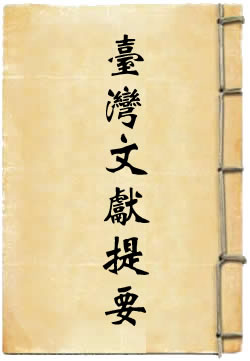 臺灣文獻提要